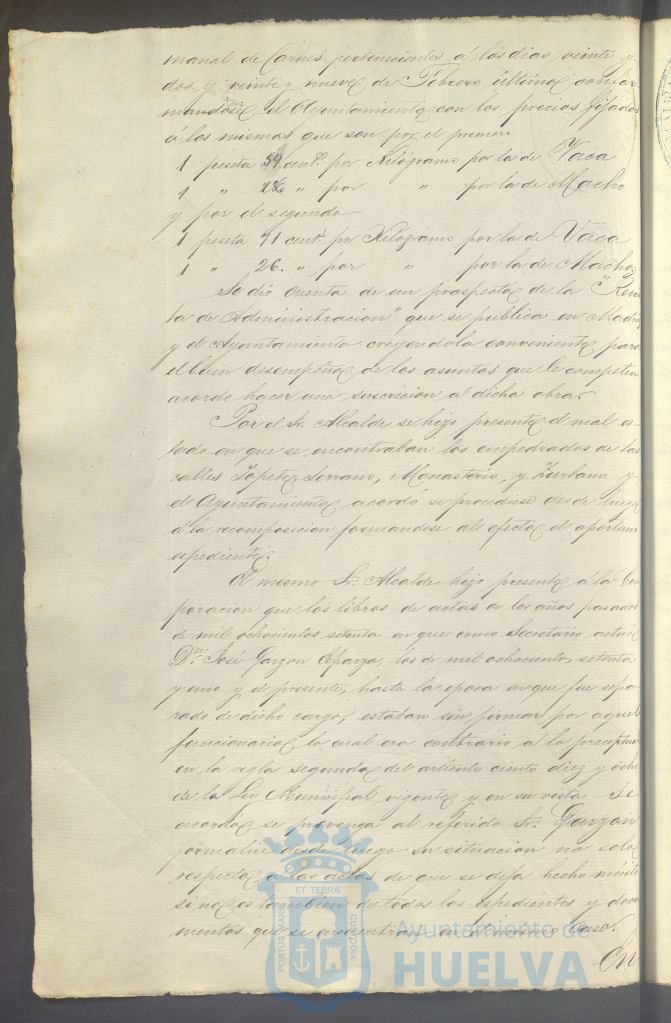 manal de Carnes, pertenecientes á los dias, veinte y
dos, y veinte y nueve de Febrero último, confor
mandose el Ayuntamiento con los precios fijados
á las mismas que son por el primero
1 peseta 59 cent.s por Kilógramo por la de Vaca
1 " 26 " por " por la de Macho
y por el segundo
1 peseta 71 cent.s por Kilógramo por la de Vaca
1 " 26. " por " por la de Macho,
Se dió cuenta de un prospecto de la "Revis
ta de Administracion" que se publica en Madrid
y el Ayuntamiento creyendola conveniente para
el buen desempeño de los asuntos que le competen
acordó hacer una suscricion al dicha obra.
Por el Sr. Alcalde se hizo presente el mal es-
tado en que se encontraban los empedrados de las
calles Topete, Serrano, Monasterio, y Zurbano y
el Ayuntamiento acordó se procediese desde luego
á la recomposicion formandose al efecto el oportuno
espediente.
El mismo Sr. Alcalde hizo presente á la Cor
poracion que los libros de actas de los años pasados
de mil ochocientos setenta en que como Secretario actuó
D.n José Garzon Aparza, los de mil ochocientos setenta
y uno y el presente, hasta la epoca en que fue sepa-
rado de dicho cargo, estaban sin firmar por aquel
funcionario lo cual era contrario á lo preceptua
en la regla segunda del artículo ciento diez y ocho
de la Ley Municipal vigente y en su vista se
acordó se prevenga al referido Sr. Garzon
formalice desde luego su situacion no solo
respecto á las actas de que se deja hecho mérito
sino es tambien de todos los espedientes y docu
mentos que se encuentran en el mismo caso.
En
PORTUS MARIS
ET TERRÆ
CUSTODIA
Ayuntamiento de
HUELVA